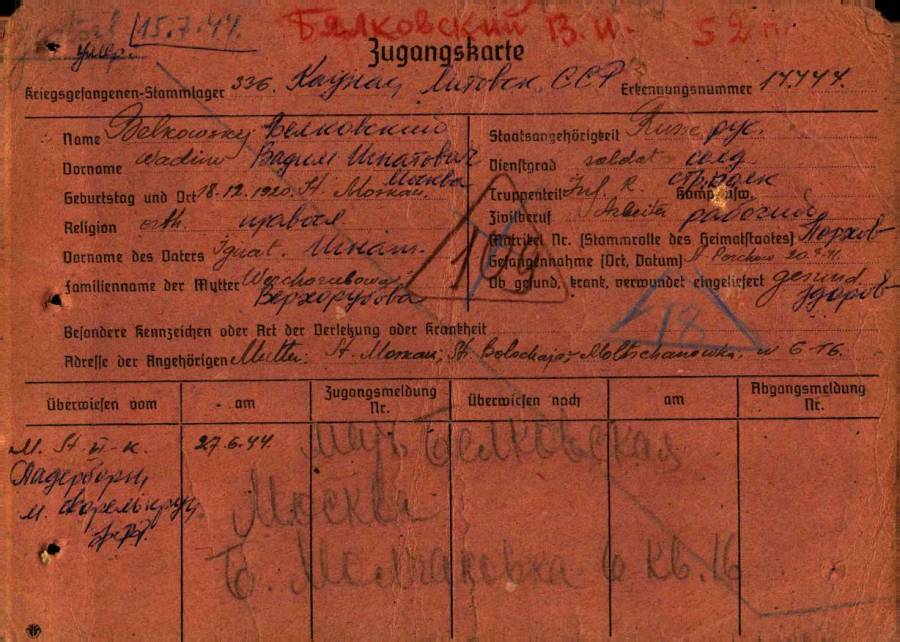 15.7.44. Бялковский В.И. 52 п.
умер.
Zugangskarte
Kriegsgefangenen-Stammlager 336. Каунас Литовск. ССР Erkennungsnummer 17444
Name Belkowskij Белковский
Vorname Wadim Вадим Игнатович
Geburtstag und Ort 18.12.1920. St. Moskau. Москва
Religion orth. правосл
Vorname des Vaters Ignat. Игнат.
Familienname der Mutter Werchorubowa
Верхорубова
Staatsangehörigkeit Russe рус.
Dienstgrad soldat солд.
Truppenteil Inf. R. стрелк Komp. usw.
Zivilberuf Arbeiter рабочий
Matrikel Nr. (Stammrolle des Heimatstaates) Порхов
Gefangennahme (Ort, Datum) Porchow 20.7.41.
Ob gesund, krank, verwundet eingeliefert gesund
здоров
109
18
Besondere Kennzeichen oder Art der Verletzung oder Krankheit
Adresse der Angehörigen Mutter: St. Moskau, St. Bolschaja-Moltschanowka. w 6-16.
Überwiesen vom am Zugangsmeldung Nr. Überwiesen nach am Abgangsmeldung Nr.
М. St 27.6.44.
Падерборн
Мать Белковская
Москва
Б. Молчановка 6 кв. 16